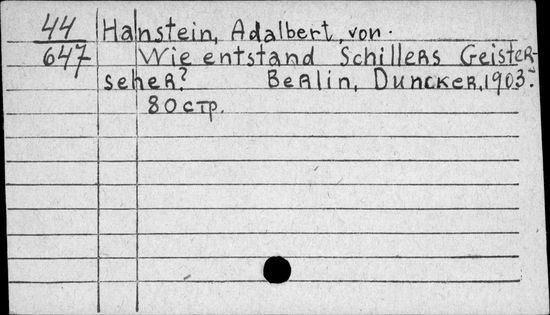 44 Hanstein, Adalbert, von.
647 Wie entstand Schillers Geister-
seher? Berlin, Duncker, 1903.
80 стр.